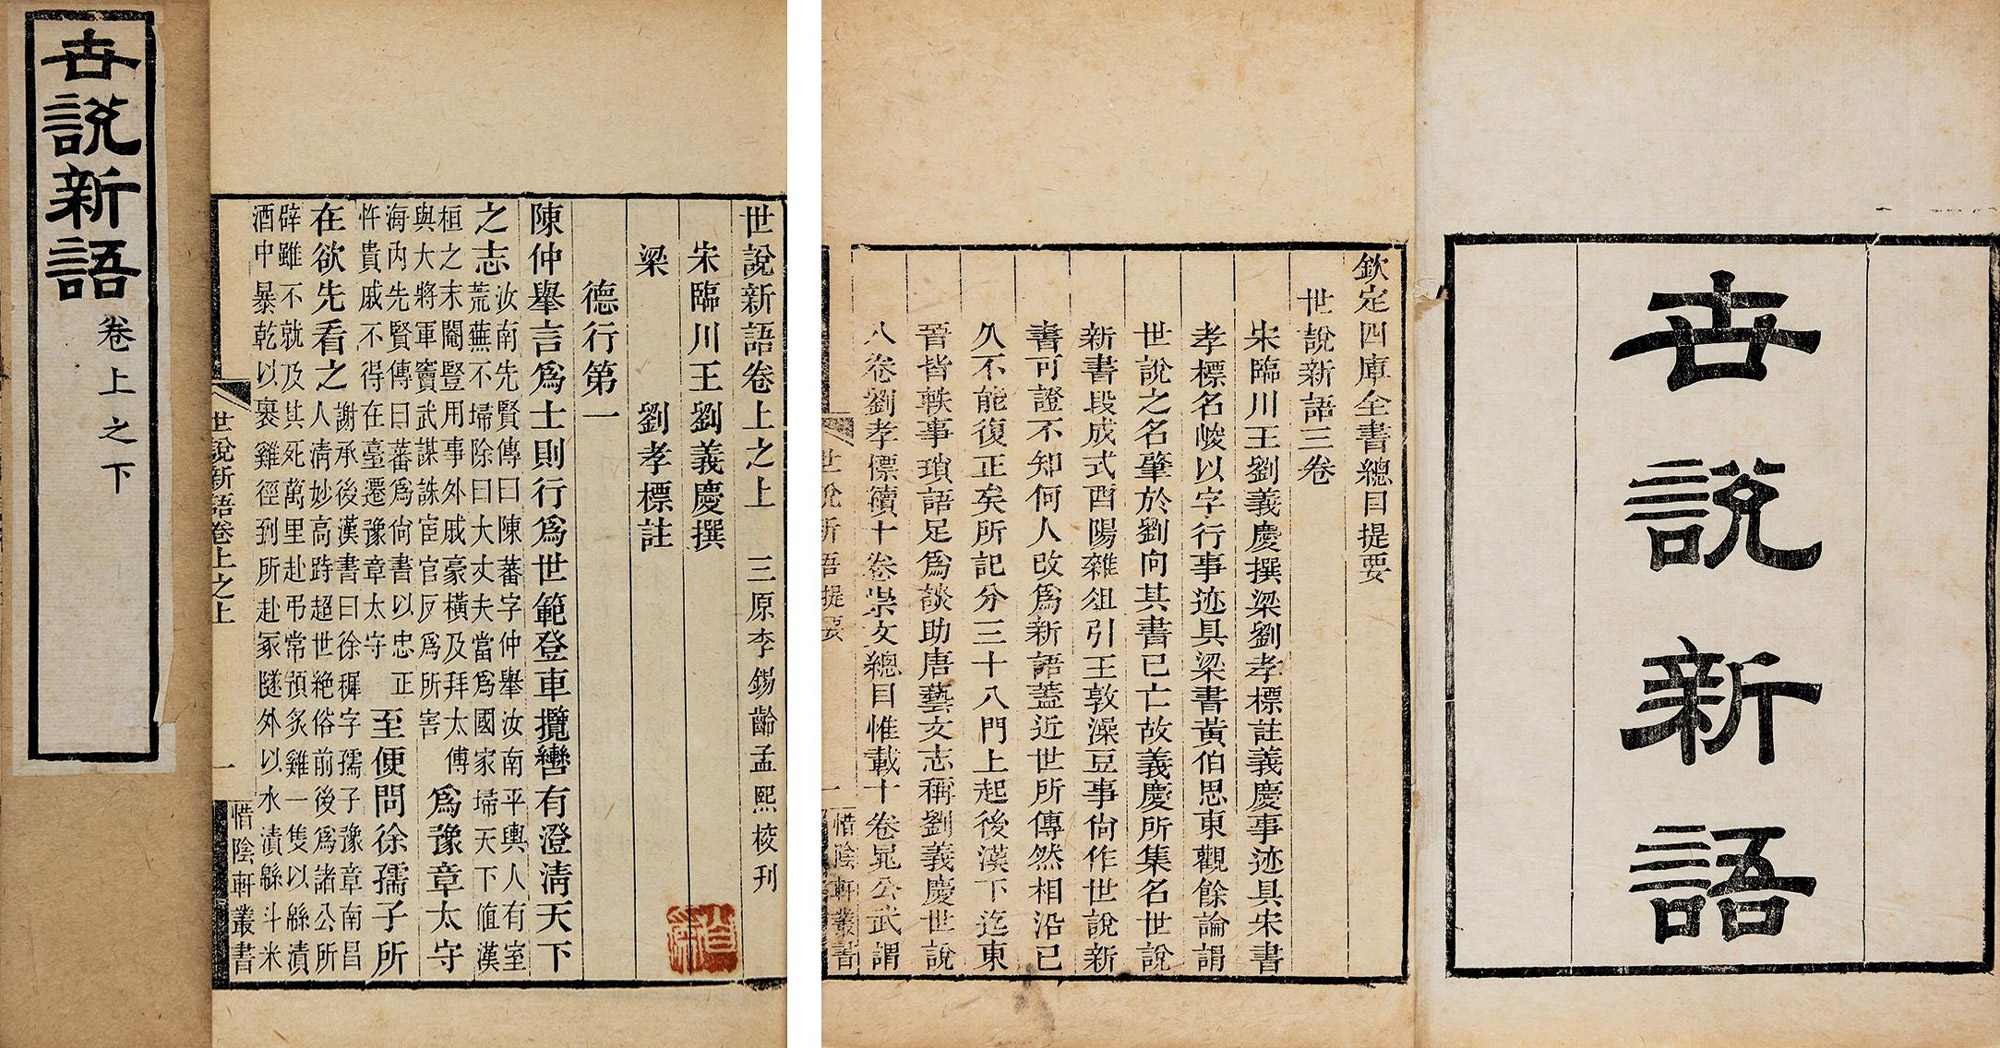 世說新語
卷上之下
世說新語卷上之上　三原李錫齡孟熙挍刊
宋臨川王劉義慶撰
梁　劉孝標註
德行第一
陳仲舉言爲士則行爲世範登車攬轡有澄淸天下
之志汝南先賢傳曰陳蕃字仲舉汝南平輿人有室荒蕪不埽除曰大丈夫當爲國家埽天下値漢
桓之末閹豎用事外戚豪橫及拜太傅與大將軍竇武謀誅宦官反爲所害爲豫章太守
海內先賢傳曰蕃爲尙書以忠正忤貴戚不得在臺遷豫章太守至便問徐孺子所
在欲先看之謝承後漢書曰徐穉字孺子豫章南昌人淸妙高跱超世絕俗前後爲諸公所
辟雖不就及其死萬里赴弔常預炙雞一隻以緜漬酒中暴乾以裹雞徑到所赴冢隧外以水漬緜斗米
世說新語卷上之上　一　惜陰軒叢書
世說新語
欽定四庫全書總目提要
世說新語三卷
宋臨川王劉義慶撰梁劉孝標註義慶事迹具宋書
孝標名峻以字行事迹具梁書黃伯思東觀餘論謂
世說之名肇於劉向其書已亡故義慶所集名世說
新書段成式酉陽雜俎引王敦澡豆事尙作世說新
書可證不知何人改爲新語蓋近世所傳然相沿已
久不能復正矣所記分三十八門上起後漢下迄東
晉皆軼事瑣語足爲談助唐藝文志稱劉義慶世說
八卷劉孝標續十卷崇文總目惟載十卷晁公武謂
世說新語提要　一　惜陰軒叢書